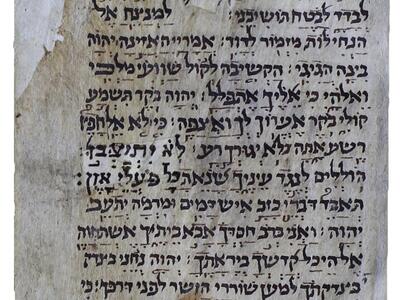 לבדד לבטח תושיבני : למנצח אל
הנחילות מזמור לדוד : אמרי האזינה יהוה
בינה הגיגי : הקשיבה לקול שועי מלכי
ואלהי כי אליך אתפלל : יהוה בקר תשמע
קולי בקר אערוך לך ואצפה : כי לא אל חפץ
רשע אתה לא יגורך רע : לא יתיצבו
הוללים לנגד עיניך שנאת כל פעלי און :
תאבד דברי כזב איש דמים ומרמה יתעב
יהוה : ואני ברב חסדך אבא ביתיך אשתחוה
אל היכל קדשך ביראתך : יהוה נחני בצדק
בצדקתך למען שוררי הושר לפני דרכך : כי